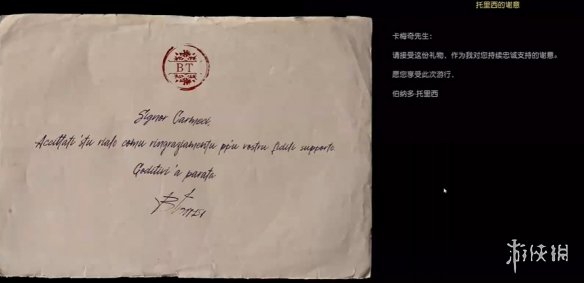 托里西的谢意
BT
Signor Carmeci,
Accittati 'stu rialu comu ringraziamentu pp'u vostru fidili supportu.
Goditivi 'a parata
卡梅奇先生:
请接受这份礼物，作为我对您持续忠诚支持的谢意。
愿您享受此次游行，
伯纳多·托里西
游侠网